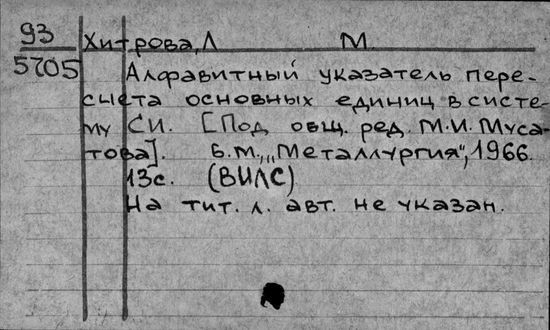 93 Хитрова, Л М.
5705 Алфавитный указатель пере-
счета основных единиц в систе-
му СИ. [Под общ. ред. М.И. Муса-
това]. Б.М., "Металлургия", 1966.
13с. (ВИЛС)
На тит. л. авт. не указан.